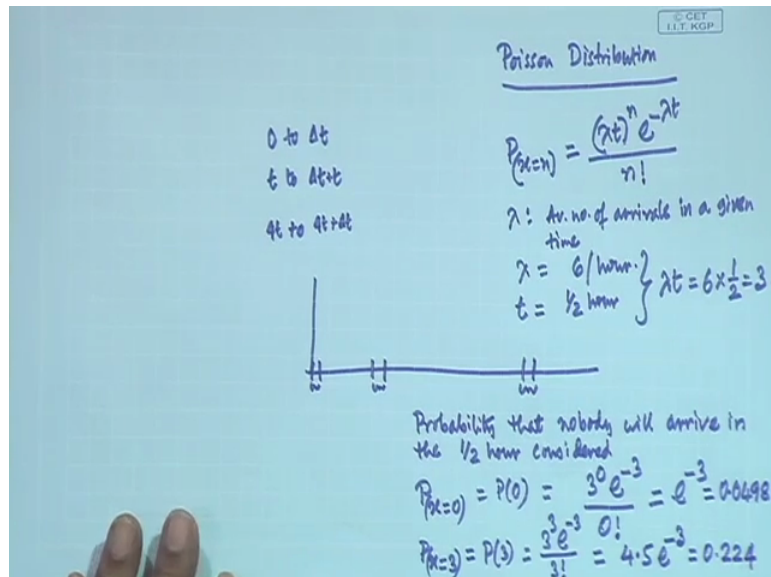 © CET
I.I.T. KGP
Poisson Distribution
0 to Δt
t to Δt+t
4t to 4t+Δt
P(x=n) = (λt)^n e^-λt / n!
λ: Av. no. of arrivals in a given
time
λ = 6/hour.
t = 1/2 hour
} λt = 6 × 1/2 = 3
Probability that nobody will arrive in
the 1/2 hour considered
P(x=0) = P(0) = 3^0 e^-3 / 0! = e^-3 = 0.0498
P(x=3) = P(3) = 3^3 e^-3 / 3! = 4.5e^-3 = 0.224